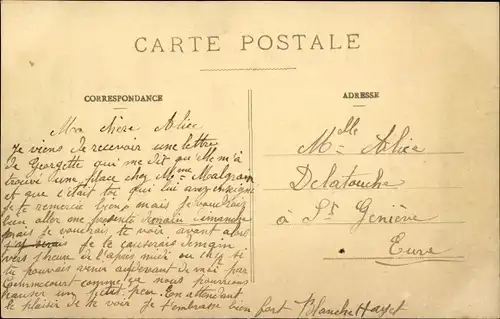 CARTE POSTALE
CORRESPONDANCE
ADRESSE
Ma chère Alice
Je viens de recevoir une lettre
de Georgette qui me dit qu'elle m'a
trouvé une place chez Mme
et que c'était toi qui lui
Je te remercie bien mais je voudrais
bien aller me demain dimanche
mais je voudrais te voir avant alors
Je te causerais demain
vers 1 heure de l'après midi ou chez si
tu pouvais venir audevant de moi par
comme ça nous pourrions
causer un petit peu. En attendant
le plaisir de te voir je t'embrasse bien fort Blanche
Melle Alice
Delatouche
à St Geniève
Eure